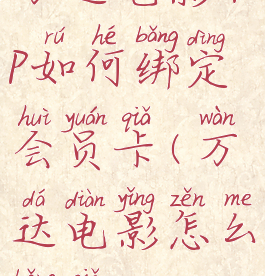 rú hé bǎng dìng
P如何绑定
huì yuán qiǎ wàn
会员卡(万
dá diàn yǐng zěn me
达电影怎么